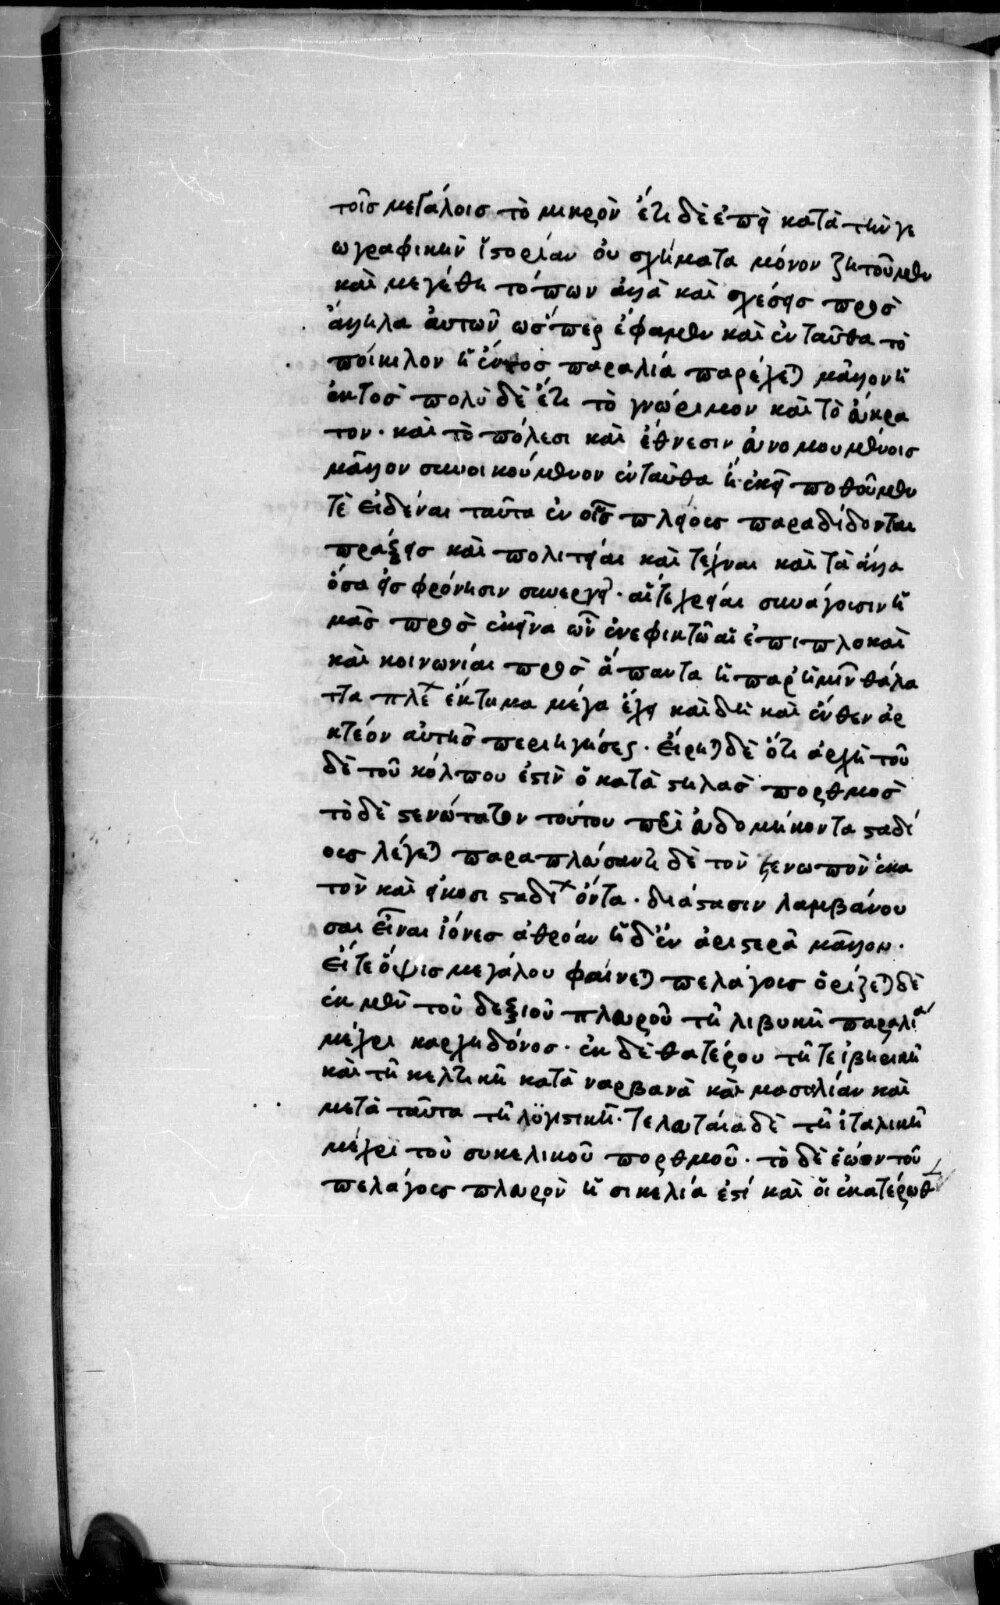 τοῖς μεγάλοις τὸ μικρὸν ἔτι δὲ ἐπεὶ κατὰ τὴν γε
ωγραφικὴν ἱστορίαν οὐ σχήματα μόνον ζητοῦμεν
καὶ μεγέθη τόπων ἀλλὰ καὶ σχέσεις πρὸς
ἄλληλα ἀυτῶν ὥσπερ ἔφαμεν καὶ ἐνταῦθα τὸ
ποίκιλον ἡ ἐντὸς παραλία παρέχεται μᾶλλον ἢ
ἐκτὸς πολὺ δὲ ἔτι τὸ γνώριμον καὶ τὸ ἄκρα
τον· καὶ τὸ πόλεσι καὶ ἔθνεσιν ἀνομουμένοις
μᾶλλον συνοικούμενον ἐνταῦθα ἢ ἐκεῖ ποθοῦμέν
τὲ εἰδέναι ταῦτα ἐν οἷς πλείους παραδίδονται
πράξεις καὶ πολιτείαι καὶ τέχναι καὶ τὰ ἄλλα
ὅσα εἰς φρόνησιν συνεργεῖ· αἵ τε χρεῖαι συνάγουσιν ἡ
μᾶς πρὸς ἐκεῖνα ὧν ἐνεφικτῶ αἱ ἐπιπλοκαὶ
καὶ κοινωνίαι πρὸς ἅπαντα ἡ παρ' ἡμῖν θάλα
ττα πλε ἔκτημα μέγα ἔχει καὶ δὴ καὶ ἔνθεν ἀρ
κτέον αὐτῆς περιηγήσες· εἴρηται δὲ ὅτι ἀρχὴ τοῦ
δὲ τοῦ κόλπου ἐστὶν ὁ κατὰ στήλας πορθμὸς
τὸ δὲ στενώτατον τούτου περὶ ἑβδομήκοντα σταδί
ους λέγεται παραπλεύσαντι δὲ τὸν στενωπὸν ἑκα
τὸν καὶ εἴκοσι σταδι ὄντα· διάστασιν λαμβάνου
σαι εἶναι ἰόνες ἀθρόαν ἡ δ' ἐν ἀριστερᾶ μᾶλλον·
εἶτε ὄψις μεγάλου φαίνεται πελάγους ὁρίζεται δὲ
ἐκ μὲν τοῦ δεξιοῦ πλευροῦ τῆ λιβυκῆ παραλία
μέχρι καρχηδόνος· ἐκ δὲ θατέρου τῆ τε ἰβηρικῆ
καὶ τῆ κελτικῆ κατὰ ναρβανὰ καὶ μασαλίαν καὶ
μετὰ ταῦτα τῆ λυγιστικῆ· τελευταία δὲ τῆ ἰταλικῆ
μέχρι τοῦ συκελικοῦ πορθμοῦ· τὸ δὲ ἑῶον τοῦ
πελάγους πλευρὸν ἡ σικελία ἐστί καὶ οἱ ἑκατέρωθ